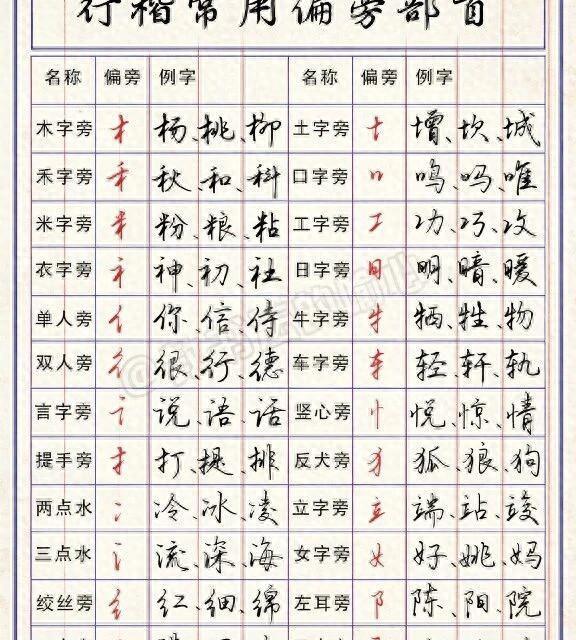 行楷常用偏旁部首
名称 偏旁 例字 名称 偏旁 例字
木字旁 木 杨、桃、柳 土字旁 土 增、坎、城
禾字旁 禾 秋、和、科 口字旁 口 鸣、吗、唯
米字旁 米 粉、粮、粘 工字旁 工 功、巧、攻
衣字旁 礻 神、初、社 日字旁 日 明、暗、暖
单人旁 亻 你、信、侍 牛字旁 牜 牺、牲、物
双人旁 彳 很、行、德 车字旁 车 轻、轩、轨
言字旁 讠 说、语、话 竖心旁 忄 悦、惊、情
提手旁 扌 打、提、排 反犬旁 犭 狐、狼、狗
两点水 冫 冷、冰、凌 立字旁 立 端、站、竣
三点水 氵 流、深、海 女字旁 女 好、姚、妈
绞丝旁 纟 红、细、绵 左耳旁 阝 陈、阳、院